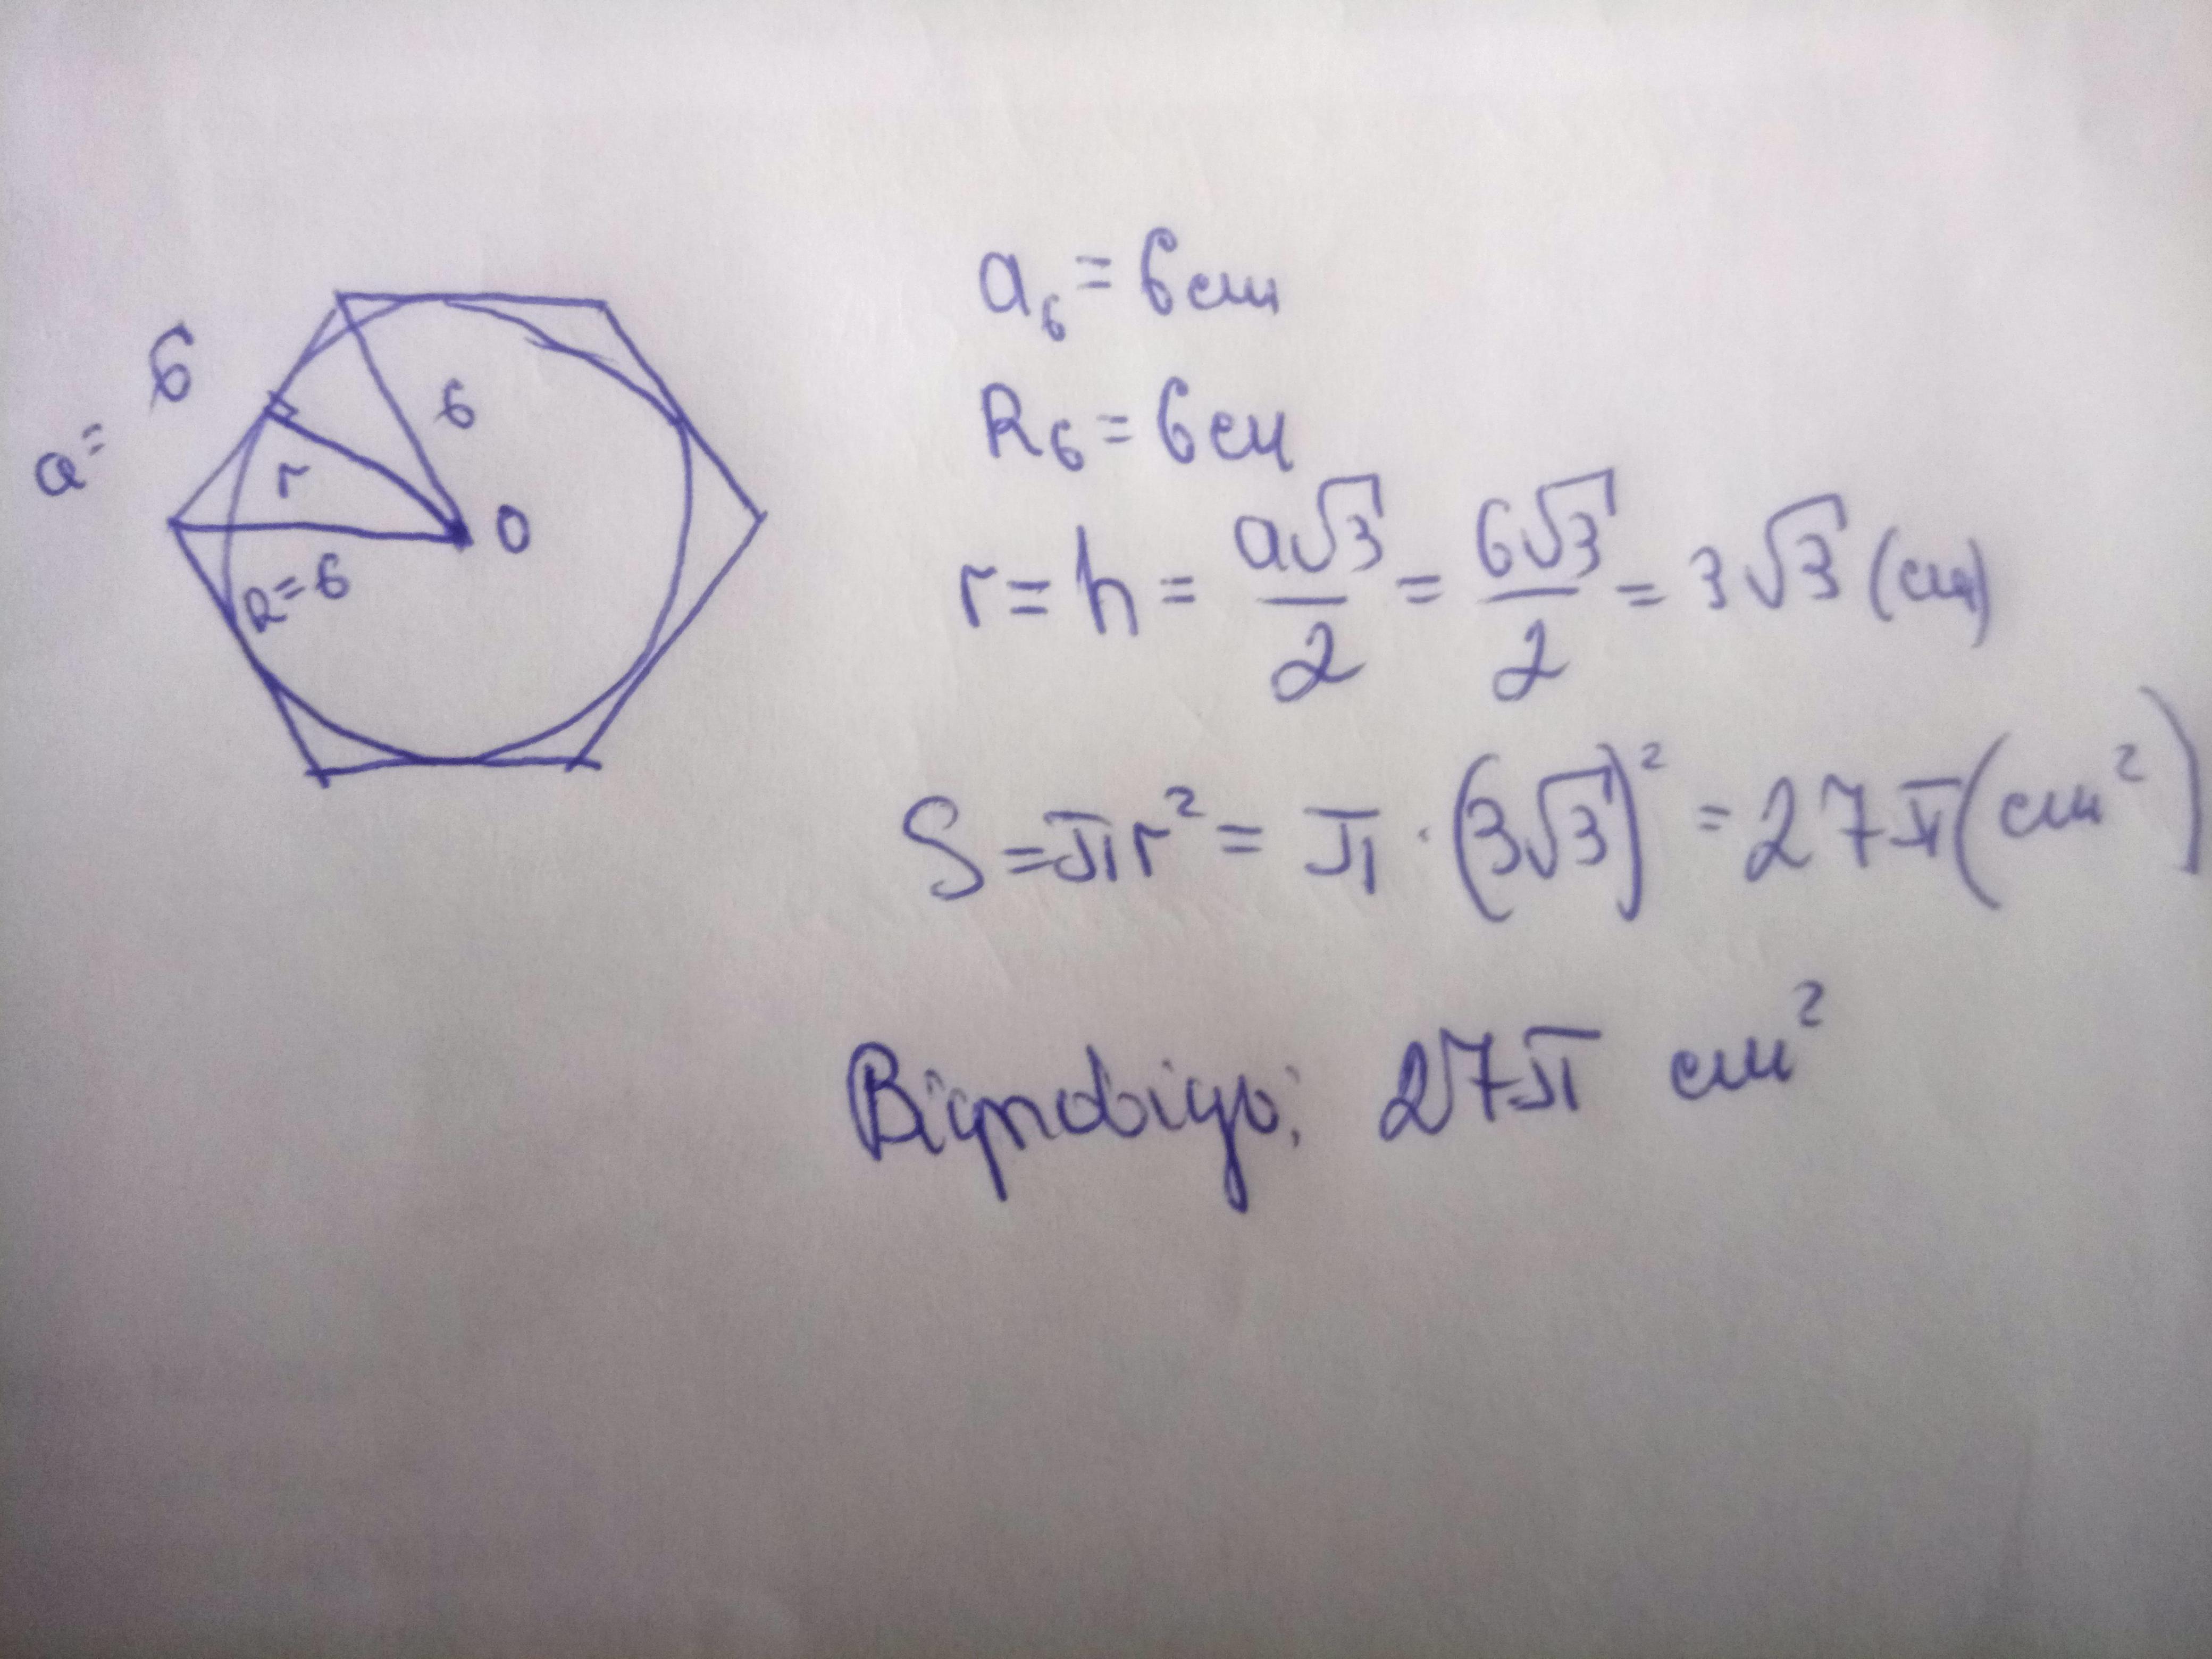 a = 6
6
r
O
R = 6
a₆ = 6 см
R₆ = 6 см
r = h = a√3/2 = 6√3/2 = 3√3 (см)
S = πr² = π · (3√3)² = 27π (см²)
Відповідь: 27π см²